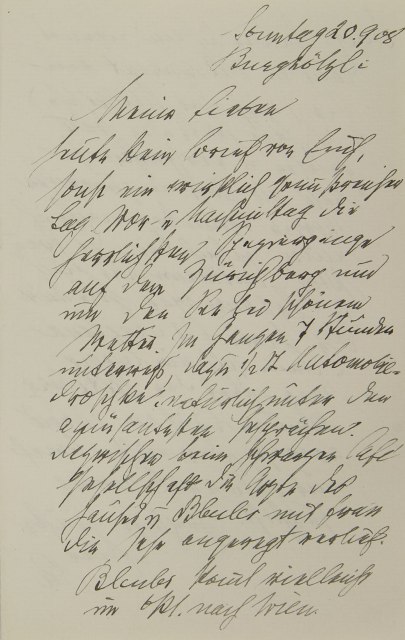 Sonntag 20.9.08
Burghölzli
Meine Lieben
heute kein Brief von Euch,
sonst ein wirklich genußreicher
Tag. Vor- u Nachmittag die
herrlichsten Spaziergänge
auf den Zürichberg und
um den See bei schönem
Wetter. Im Ganzen 7 Stunden
unterwegs, dazu ½ St Automobil-
droschke, natürlich unter den
amüsantesten Gesprächen.
Dazwischen beim schwarzen Café
Gesellschaft die Ärzte des
Hauses u Bleuler mit Frau
die sehr angeregt verlief.
Bleuler kommt vielleicht
im Okt. nach Wien.